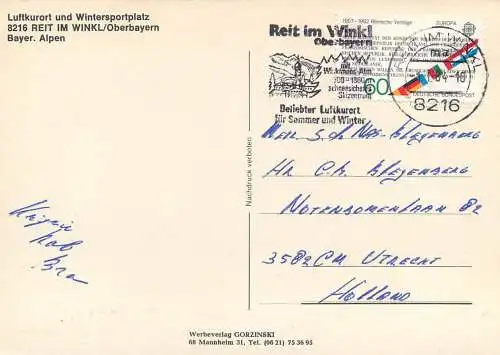 Luftkurort und Wintersportplatz
8216 REIT IM WINKL/Oberbayern
Bayer. Alpen
Reit im Winkl
Oberbayern
mit
Winklmoos-Alm
700-1860
schneesicheres
Skizentrum
Beliebter Luftkurort
für Sommer und Winter
1957-1982 Römische Verträge
EUROPA
60
DEUTSCHE BUNDESPOST
IM WINKL
8216
Nachdruck verboten
Hr C. h. Bleyenberg
Notenbomenlaan 82
3582 CM Utrecht
Holland
Werbeverlag GORZINSKI
68 Mannheim 31, Tel. (06 21) 75 36 95